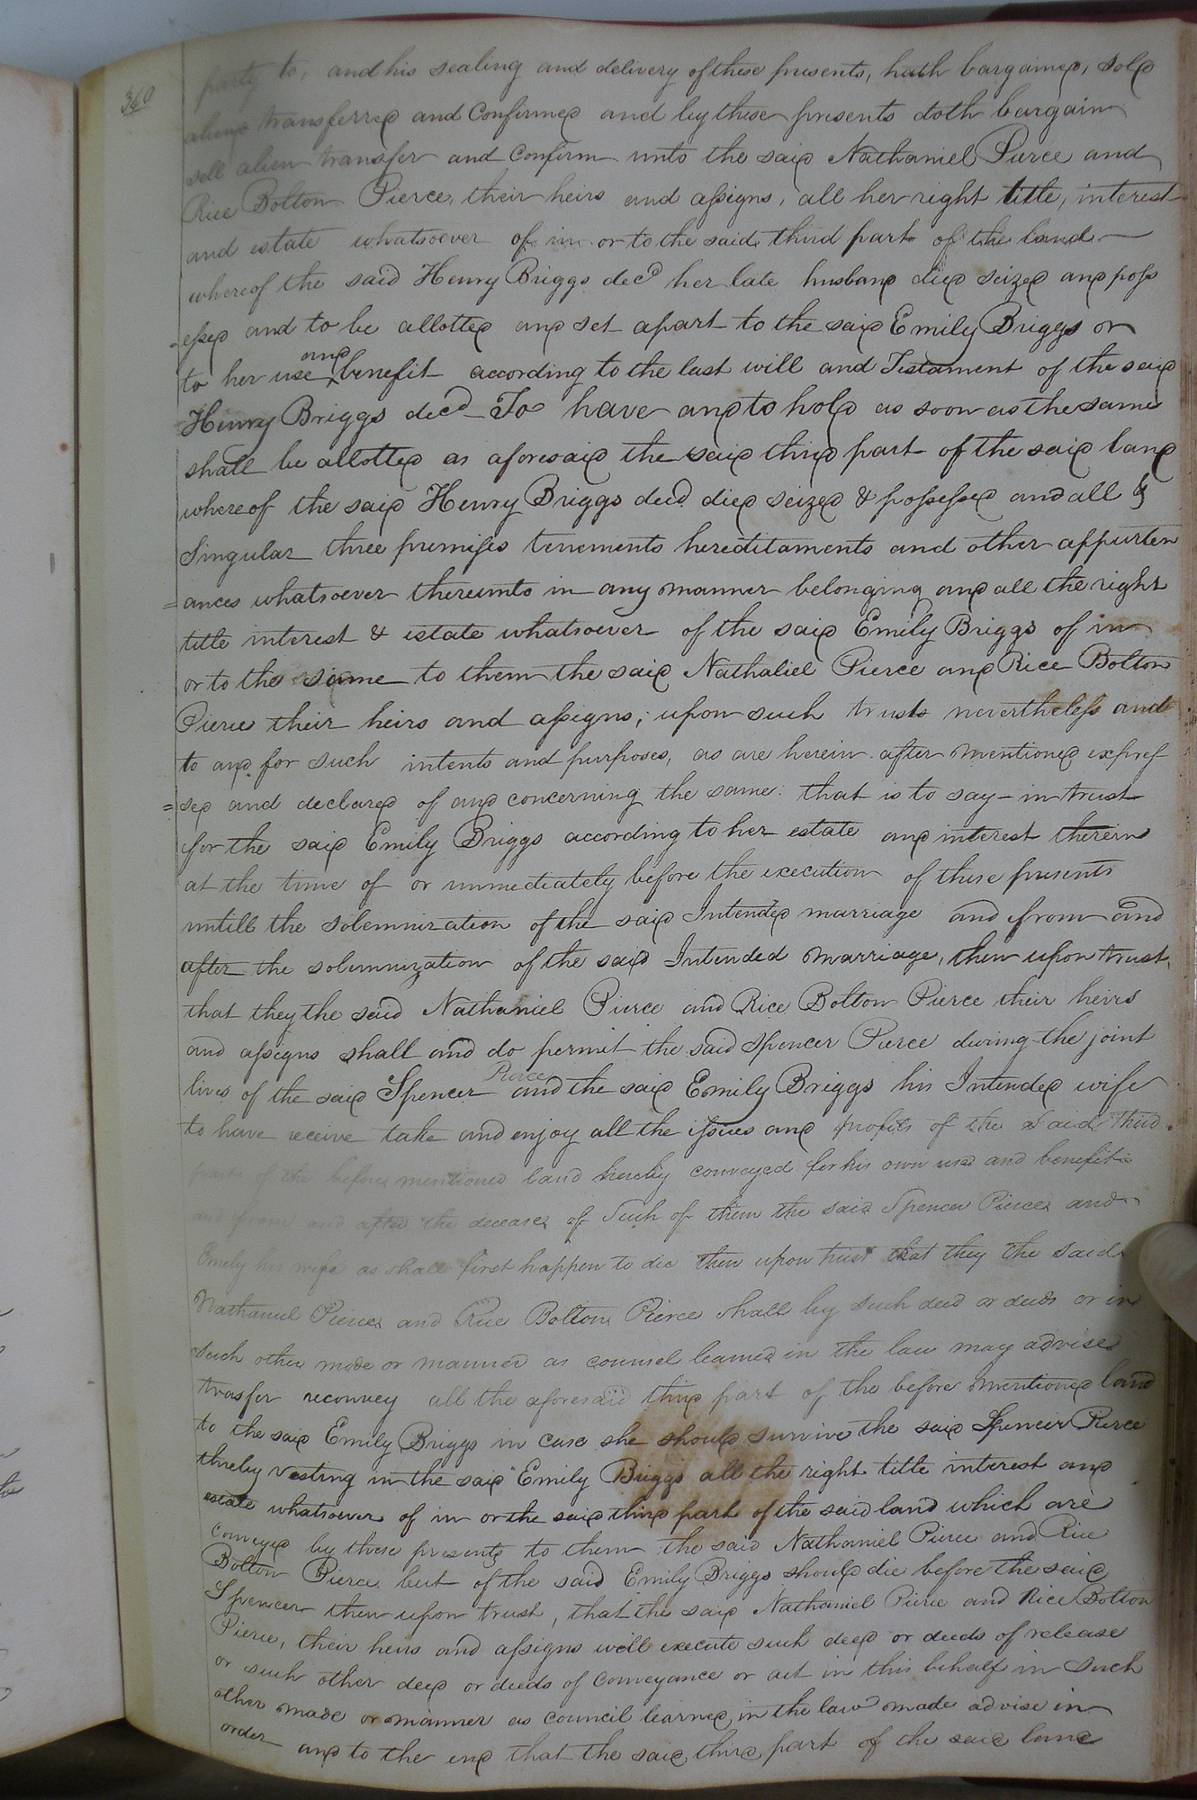 360
party to, and his sealing and delivery of these presents, hath bargained, sold
aliened transferred and Confirmed and by these presents doth bargain
sell alien transfer and Confirm unto the said Nathaniel Pierce and
Rice Bolton Pierce, their heirs and assigns, all her right title, interest
and estate whatsoever of in or to the said third part of the land
whereof the said Henry Briggs decd her late husband died seized and poss
-essed and to be allotted and set apart to the said Emily Briggs or
to her use and benefit according to the last will and Testament of the said
Henry Briggs decd To have and to hold as soon as the same
shall be allotted as aforesaid the said third part of the said land
whereof the said Henry Briggs decd died seized & possessed and all &
Singular three premises tenements hereditaments and other appurten
=ances whatsoever thereunto in any manner belonging and all the right
title interest & estate whatsoever of the said Emily Briggs of in
or to the same to them the said Nathaliel Pierce and Rice Bolton
Pierce their heirs and assigns; upon such trusts nevertheless and
to and for such intents and purposes, as are herein after mentioned expres
=sed and declared of and concerning the same: that is to say - in trust
for the said Emily Briggs according to her estate and interest therein
at the time of or immediately before the execution of these presents
untill the solemnization of the said Intended marriage and from and
after the solemnization of the said Intended marriage, then upon trust,
that they the said Nathaniel Pierce and Rice Bolton Pierce their heirs
and assigns shall and do permit the said Spencer Pierce during the joint
lives of the said Spencer Pierce and the said Emily Briggs his Intended wife
to have receive take and enjoy all the issues and profits of the said third
part of the before mentioned land hereby conveyed for his own use and benefit
and from and after the decease of Such of them the said Spencer Pierce and
Emily his wife as shall first happen to die then upon trust that they the said
Nathaniel Pierce and Rice Bolton Pierce shall by such deed or deeds or in
such other mode or manner as counsel learned in the law may advise
trasfer reconvey all the aforesaid third part of the before mentioned land
to the said Emily Briggs in case she should survive the said Spencer Pierce
thereby vesting in the said Emily Briggs all the right title interest and
estate whatsoever of in or the said third part of the said land which are
conveyed by these presents to them the said Nathaniel Pierce and Rice
Bolton Pierce but of the said Emily Briggs should die before the said
Spencer then upon trust, that the said Nathaniel Pierce and Rice Bolton
Pierce, their heirs and assigns will execute such deed or deeds of release
or such other deed or deeds of Conveyance or act in this behalf in such
other made or manner as council learned, in the law made advise in
order and to the end that the said third part of the said land